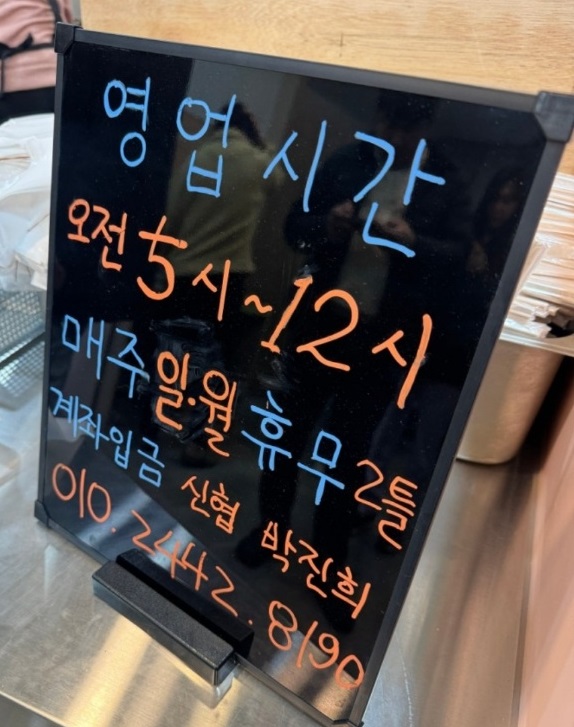 영업시간
오전 5시~12시
매주 일.월 휴무 2틀
계좌입금 신협 박진희
010.2442.8190